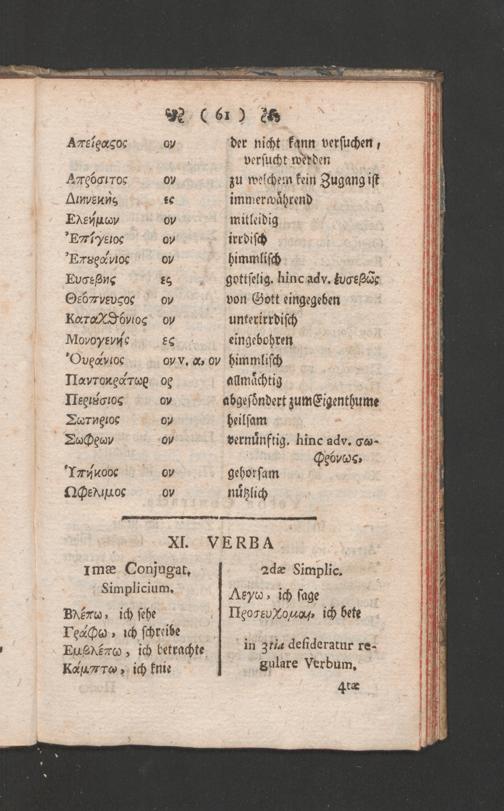 ( 61 )
Απείραςος ον der nicht kann versuchen,
versucht werden
Απρόσιτος ον zu welchem kein Zugang ist
Διηνεκής ες immerwährend
Ελεήμων ον mitleidig
Ἐπίγειος ον irrdisch
Ἐπȣράνιος ον himmlisch
Ευσεβης ες gottselig. hinc adv. ἐυσεβῶς
Θεόπνευςος ον von Gott eingegeben
Καταχθόνιος ον unterirrdisch
Μονογενής ες eingebohren
Ὀυράνιος ον v. α, ον himmlisch
Παντοκράτωρ ορ allmächtig
Περιȣ́σιος ον abgesöndert zum Eigenthume
Σωτηριος ον heilsam
Σωφρων ον vernünftig. hinc adv. σω-
φρόνως.
Ὑπήκοος ον gehorsam
Ωφελιμος ον nützlich
XI. VERBA
1mæ Conjugat.
Simplicium.
Βλέπω, ich sehe
Γράφω, ich schreibe
Εμβλέπω, ich betrachte
Κάμπτω, ich knie
2dæ Simplic.
Λεγω, ich sage
Προσευχομαι, ich bete
in 3tia desideratur re-
gulare Verbum.
4tæ